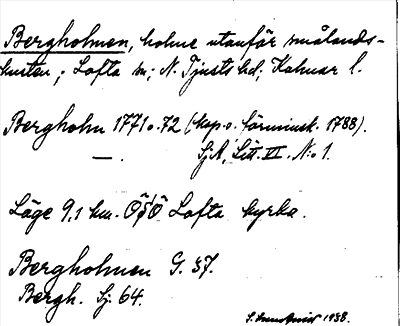 Bergholmen, holme utanför smålands-
kusten; Lofta sn; N. Tjusts hd; Kalmar l.
Bergholm 1771 o. 72 (kop. o. förminsk. 1788).
—. SjA, Litt. VI. N:o 1.
Läge 9,1 km. ÖSÖ Lofta kyrka.
Bergholmen G. 37.
Bergh. Sj. 64.
1938.